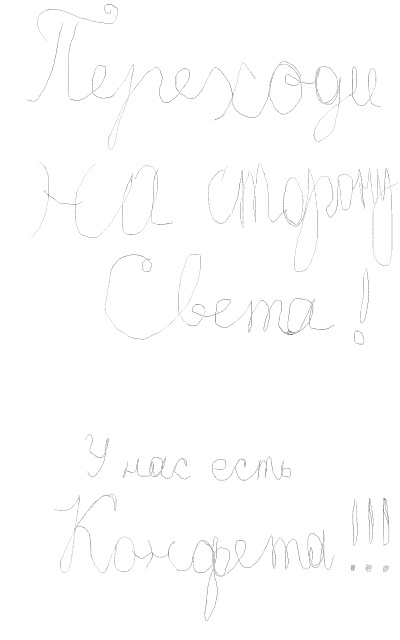 Переходи
на сторону
Света!
У нас есть
Конфета!!!